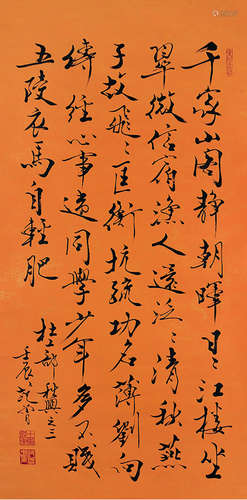 千家山阁靜朝暉日々江樓坐
翠微信宿漁人還泛々清秋燕
子故飛々匡衡抗疏功名薄劉向
傳經心事違同學少年多不賤
五陵衣馬自輕肥
杜工部秋興之三
壬辰